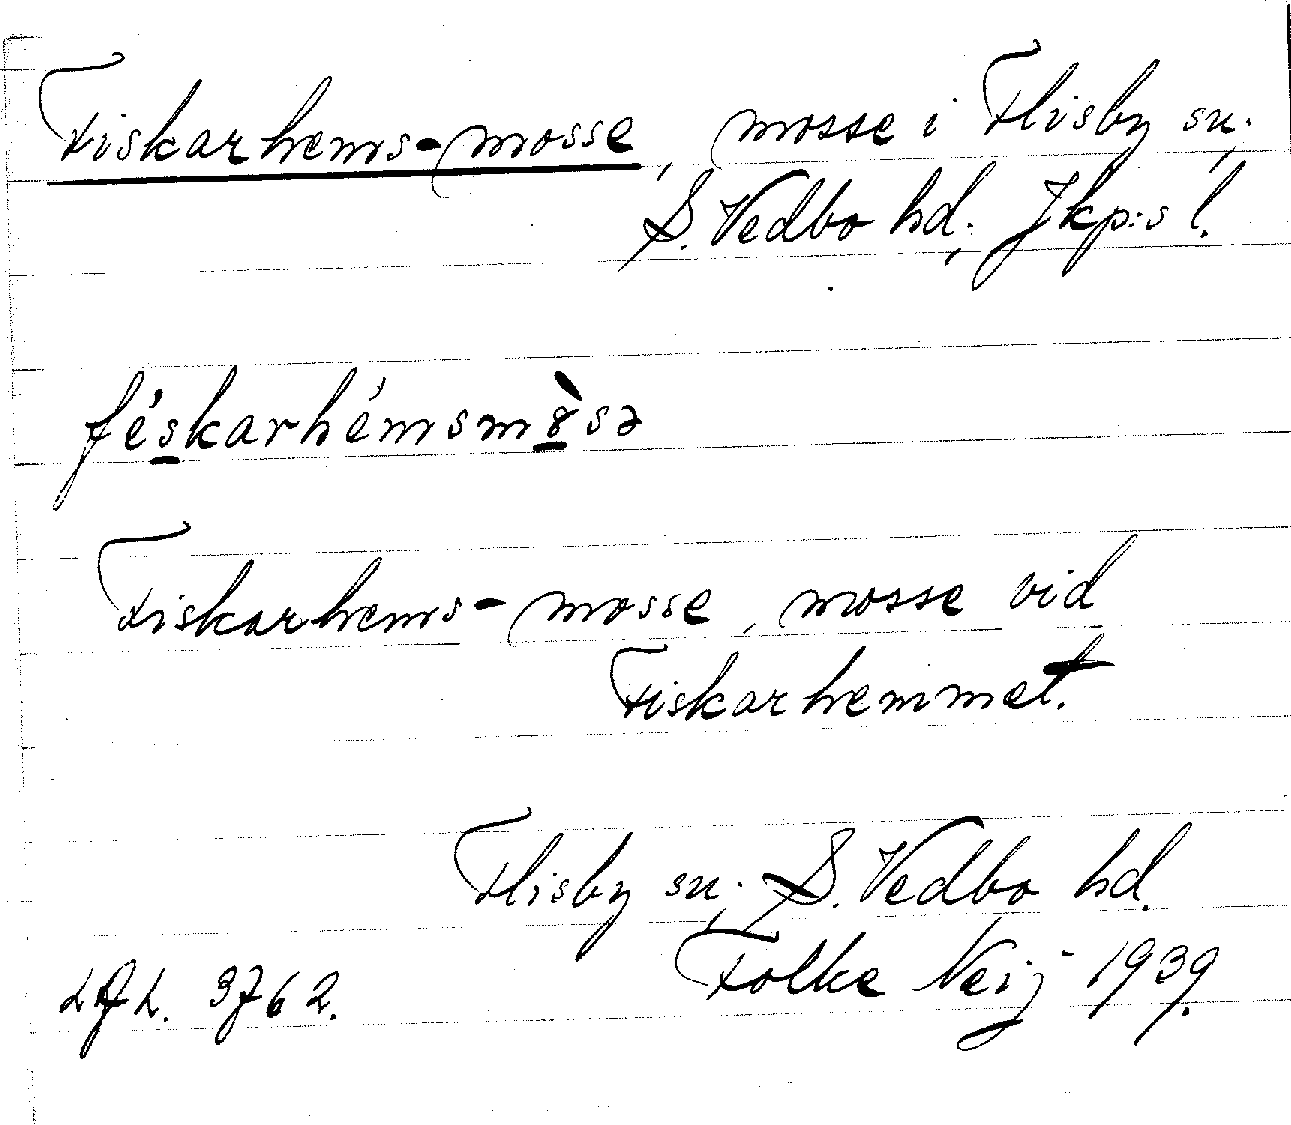 Fiskarhems-mosse, mosse i Flisby sn.,
S. Vedbo hd., Jkp:s l.
féskarhémsmòsə
Fiskarhems-mosse, mosse vid
Fiskarhemmet.
Flisby sn., S. Vedbo hd.
Folke Neij 1939.
3762.